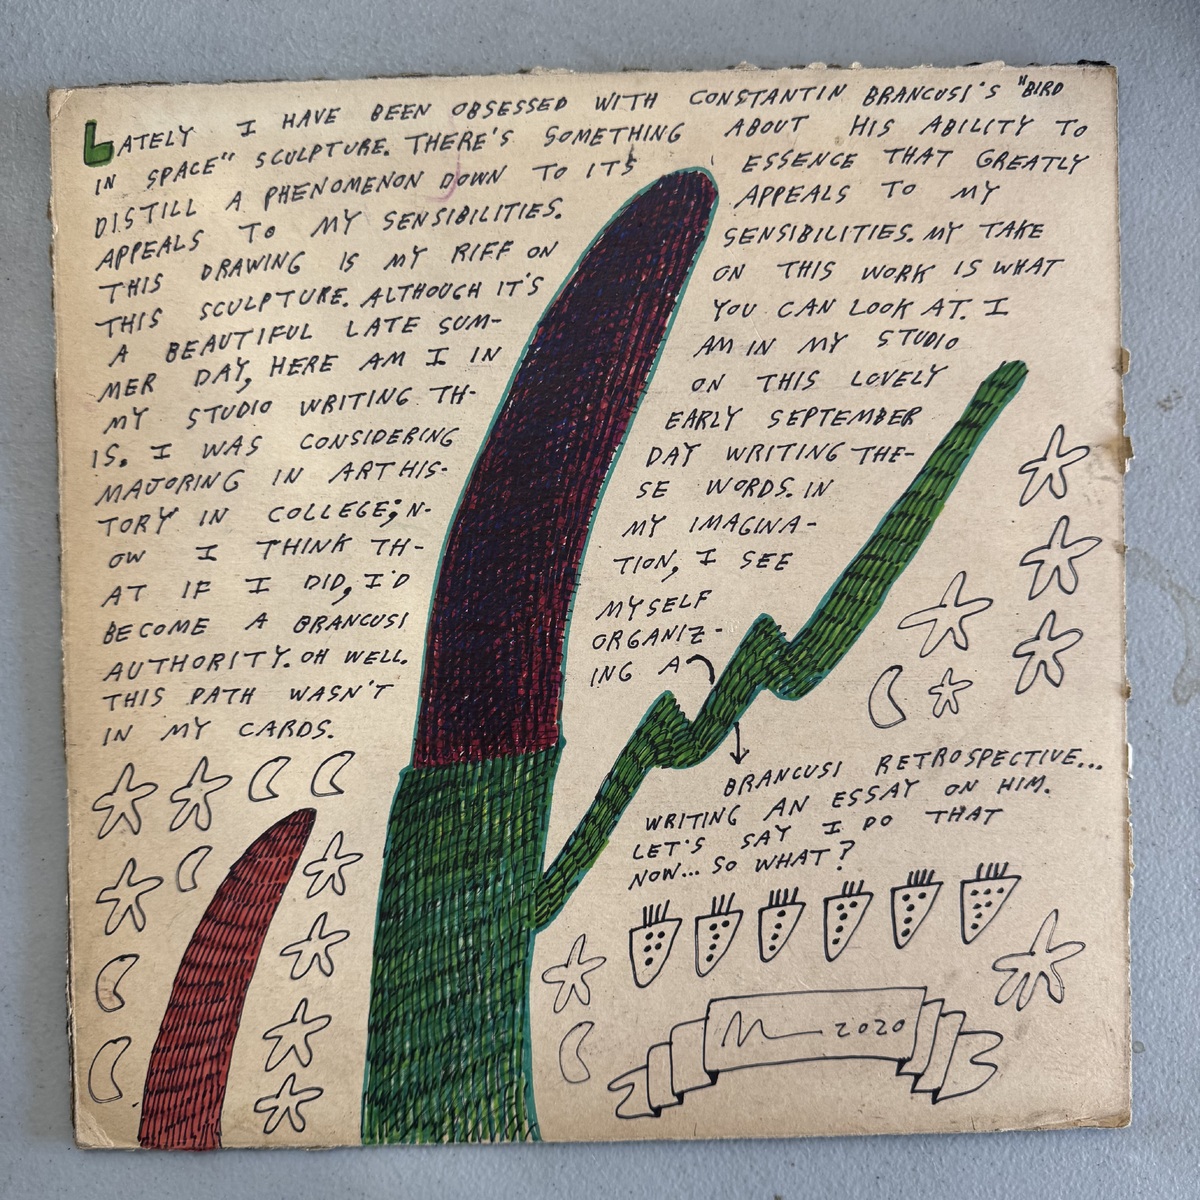 LATELY I HAVE BEEN OBSESSED WITH CONSTANTIN BRANCUSI'S "BIRD
IN SPACE" SCULPTURE. THERE'S SOMETHING ABOUT HIS ABILITY TO
DISTILL A PHENOMENON DOWN TO IT'S ESSENCE THAT GREATLY
APPEALS TO MY SENSIBILITIES.
THIS DRAWING IS MY RIFF ON
THIS SCULPTURE. ALTHOUGH IT'S
A BEAUTIFUL LATE SUM-
MER DAY, HERE AM I IN
MY STUDIO WRITING TH-
IS. I WAS CONSIDERING
MAJORING IN ART HIS-
TORY IN COLLEGE; N-
OW I THINK TH-
AT IF I DID, I'D
BECOME A BRANCUSI
AUTHORITY. OH WELL.
THIS PATH WASN'T
IN MY CARDS.
APPEALS TO MY
SENSIBILITIES. MY TAKE
ON THIS WORK IS WHAT
YOU CAN LOOK AT. I
AM IN MY STUDIO
ON THIS LOVELY
EARLY SEPTEMBER
DAY WRITING THE-
SE WORDS. IN
MY IMAGINA-
TION, I SEE
MYSELF
ORGANIZ-
ING A
BRANCUSI RETROSPECTIVE...
WRITING AN ESSAY ON HIM.
LET'S SAY I DO THAT
NOW... SO WHAT?
2020